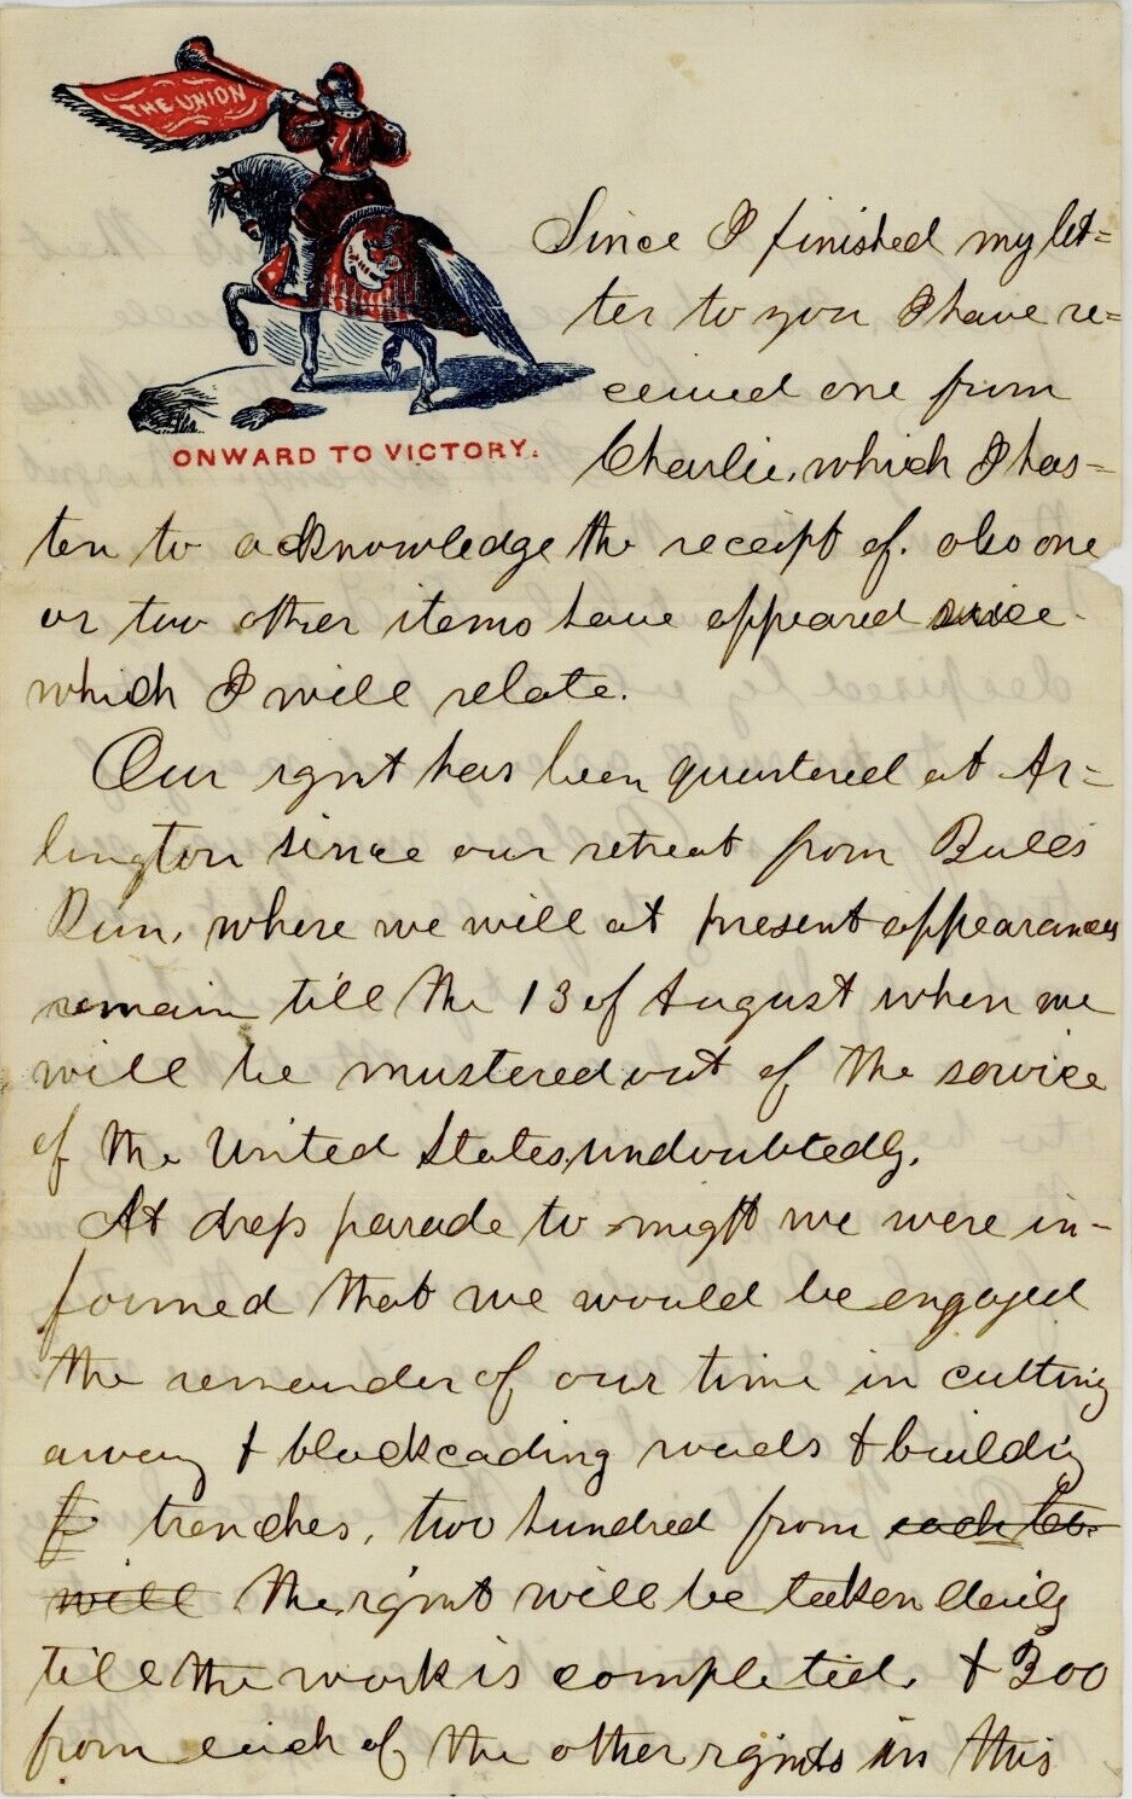 THE UNION
ONWARD TO VICTORY.
Since I finished my let=
ter to you I have re=
ceived one from
Charlie, which I has=
ten to acknowledge the receipt of. also one
or two other items have appeared since
which I will relate.
Our rgmt has been quartered at Ar=
lington since our retreat from Bulls
Run, where we will at present appearances
remain till the 13 of August when we
will be mustered out of the service
of the United States, undoubtedly.
At dress parade to-night we were in-
formed that we would be engaged
the remainder of our time in cutting
away & blockcading roads & buildig
trenches, two hundred from each Co.
will the rgmt will be taken daily
till the work is completed. & 300
from each of the other rgmts in this